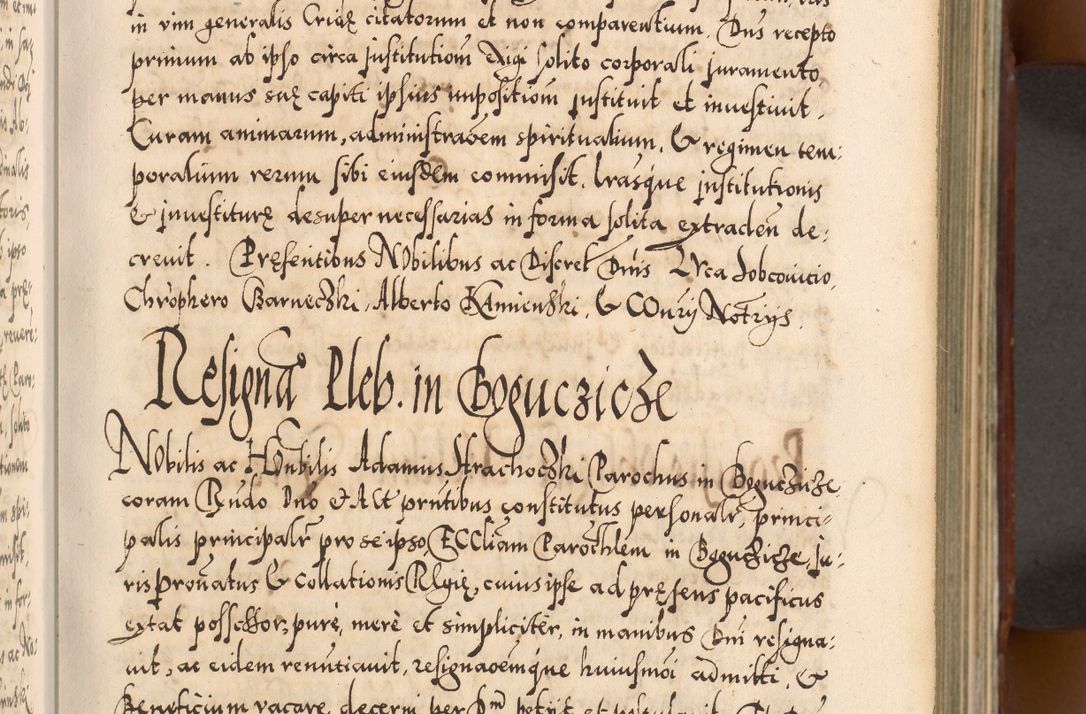 in vim generalis Criđę citatorum et non comparentium. Dns recepto
primum ab ipso circa justitutiom Rigi solito corporali juramento,
per manus suę capiti ipsius impositiom justituit et investivit.
Curam animarum, administraoem spiritualium, & regimen tem:
poralium rerum sibi eiusdem commisit. lrasque justitutionis
& jnvestiturę desuper necessarias in forma solita extraden de:
crevit. Pręsentibus Nobilibus ac Discret Dnis Luca Dobcovicio,
Chrophero Barneczki, Alberto Kamienski, & COury Notrijs.
Resigna Pleb. in Boguczicze
Nobilis ac Honbilis Adamus Strachoczki Parochus in Boguczicze
coram Rndo Dno et Act prntibus constitutus personalr, princi:
palis principalr pro se ipso, ECCliam Parochlem in Boguczicze, ju:
ris Pronatus & Collationis Rgię, cuius ipse ad pręsens pacificus
extat possessor, purè, merè et simplicitèr, in manibus Dni resigna:
vit, ac eidem renuntiavit, resignaoemque huiusmoi admitti, &
Beneficium vacare, decerni per Dnm petijt et postulavit